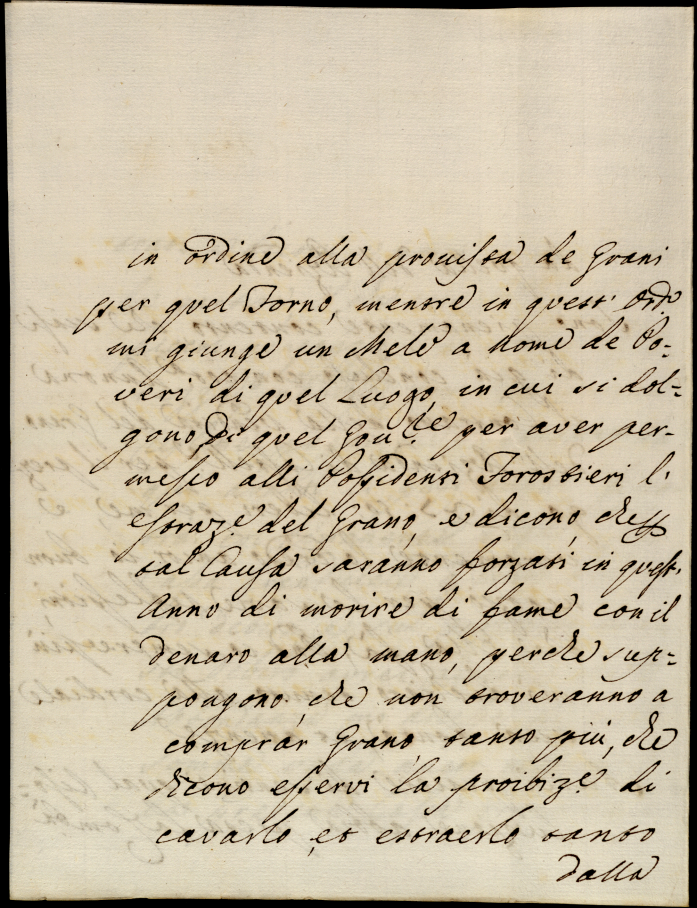 in ordine alla provista de Grani
per quel Forno, mentre in quest' ord.ᵒ
mi giunge un Mele a nome de Po-
veri di quel Luogo, in cui si dol-
gono, di quel Gov.ʳᵉ per aver per-
messo alli Possidenti Forastieri l'
estraz.ᵉ del Grano, e dicono, che p
tal Causa saranno forzati in quest'
Anno di morire di fame con il
denaro alla mano, perche sup-
pongono che non troveranno a
comprar Grano, tanto più, che
dicono esservi la proibiz.ᵉ di
cavarlo, et estraerlo tanto
dalla